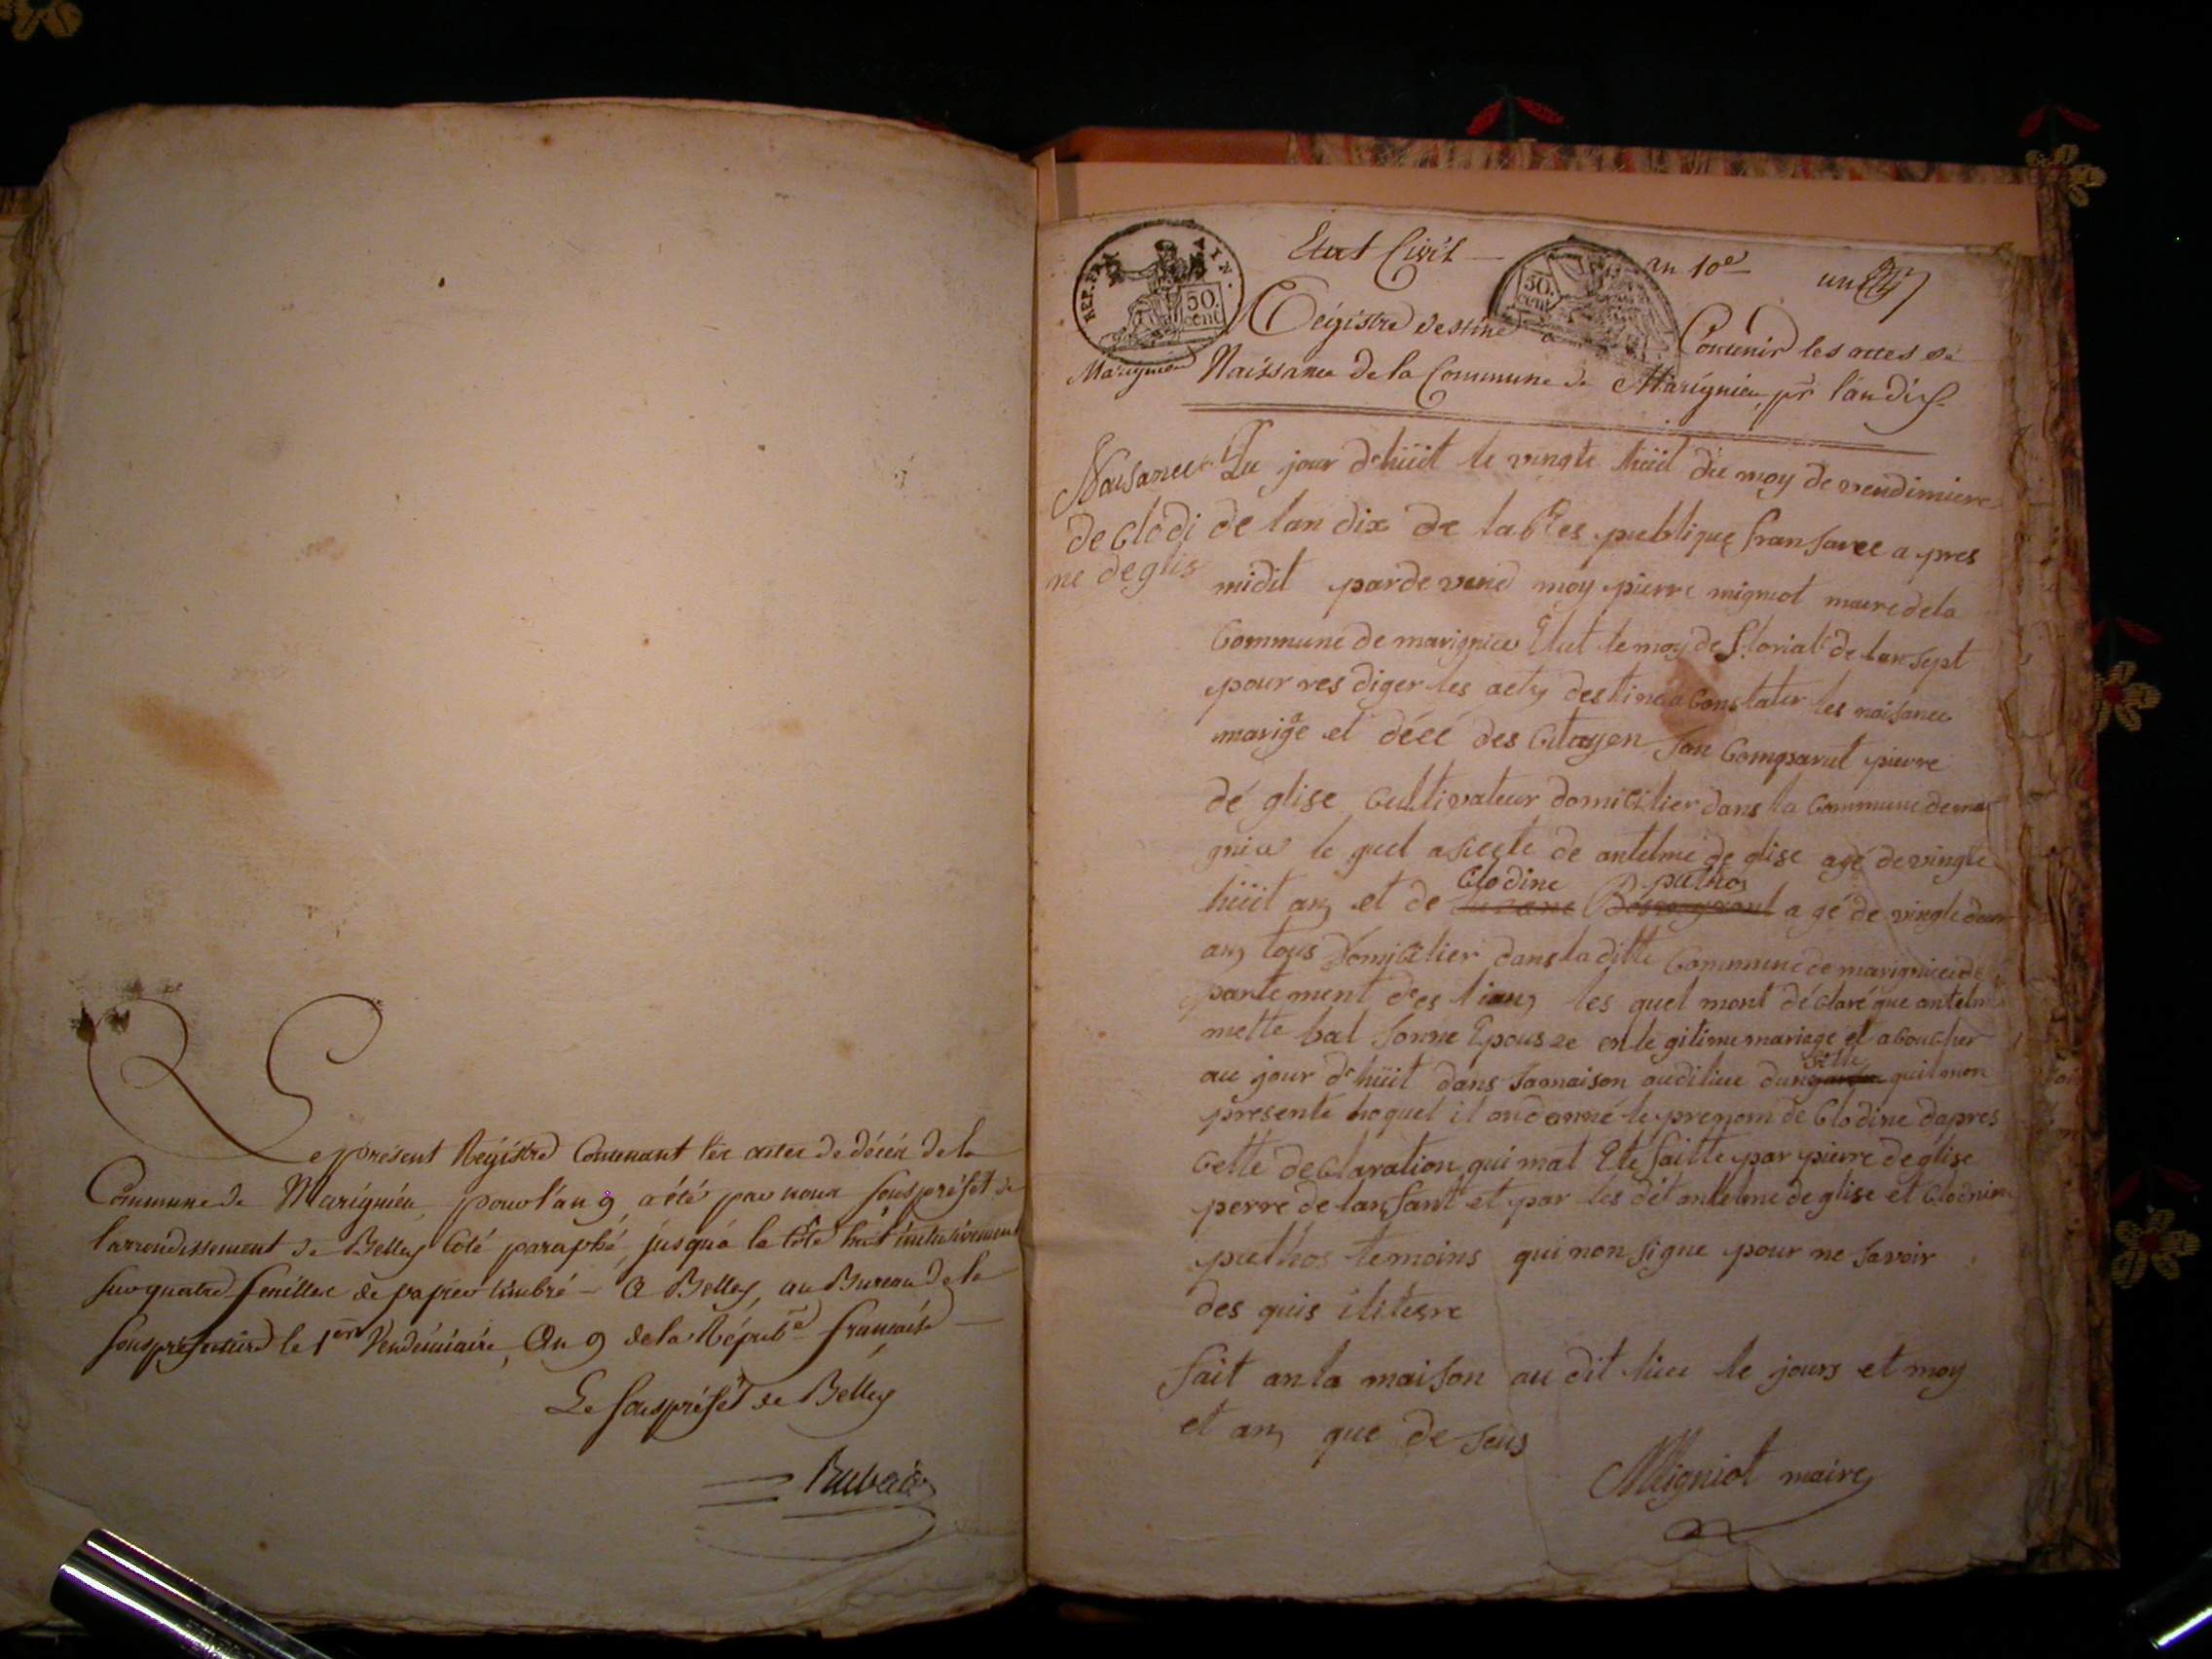 Le présent Régistre Contenant les actes de décès de la
Commune de Marignieu, pour l'an 9, a été par nous souspréfet de
l'arrondissement de Belley Coté paraphé, jusqu'à la côte huit inclusivement
sur quatre feuilles de papier timbré - A Belley, au Bureau de la
sousprefecture le 1er Vendémiaire, An 9 de la Répub.e française
Le souspréfet de Belley
REP. FRA. AIN.
50. cent.
Etat Civil
50. cent.
an 10e
un
Régistre destiné a Contenir les actes de
Marignieu Naissance de la Commune de Marignieu, pr l'an dix
Naisance
de Clodi
ne deglis
Au jour dhuit le vingte huit du moy de vendimiere
de lan dix de la res publique fransaee a pres
midit parde vend moy pierre migniot maire dela
Commune de marignieu Elut le moy de florial de lan sept
pour res diger les acty destine a Constater les naisance
marige et décé des Citayen son Comparut pierre
dé glise Cultivateur domicilier dans la Commune de mari
gnieu le quel asiecte de antelme de glise agé de vingte
huit an et de Clodine puthos agé de vingte deux
an tous domicilier dans la ditte Commune de marignieu de
partement des lian les quel mont déclaré que antelm
mette bal sonne Epousze en le gitime mariage et a bouCher
au jour dhuit dans sa maison audit lieu dune fille quil mon
presenté hoquel il on donné le prenom de Clodine dapres
Cette declaration qui mat Ete faitte par pierre deglise
perre de lansfant et par les dit antelme deglise et Clodine
puthos temoins qui non signe pour ne savoir
des quis ilitesre
fait anla maison au dit lieu le jours et moy
et an que de sus
Migniot maire